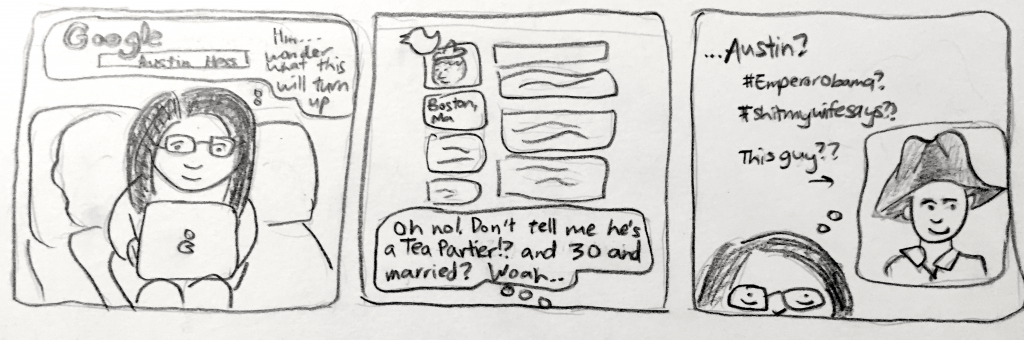 Google
Austin Hess
Hm...
wonder
what this
will turn
up
Boston,
Ma
Oh no!. Don't tell me he's
a Tea Partier!? and 30 and
married? Woah..
...Austin?
#EmperorObama?
#shitmywifesays??
This guy??